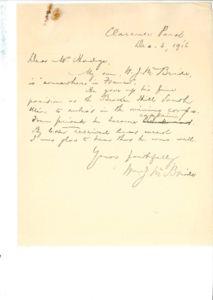 Clarence Park
Dec. 4, 1916
Dear Mr
My son, W. J. McBride,
is "somewhere in France".
He gave up his fine
position on the Broken Hill South
Mine to enlist in the mining corps.
From private he became captain
By letter received last week
I was glad to hear that he was well.
Yours faithfully
W. J. McBride